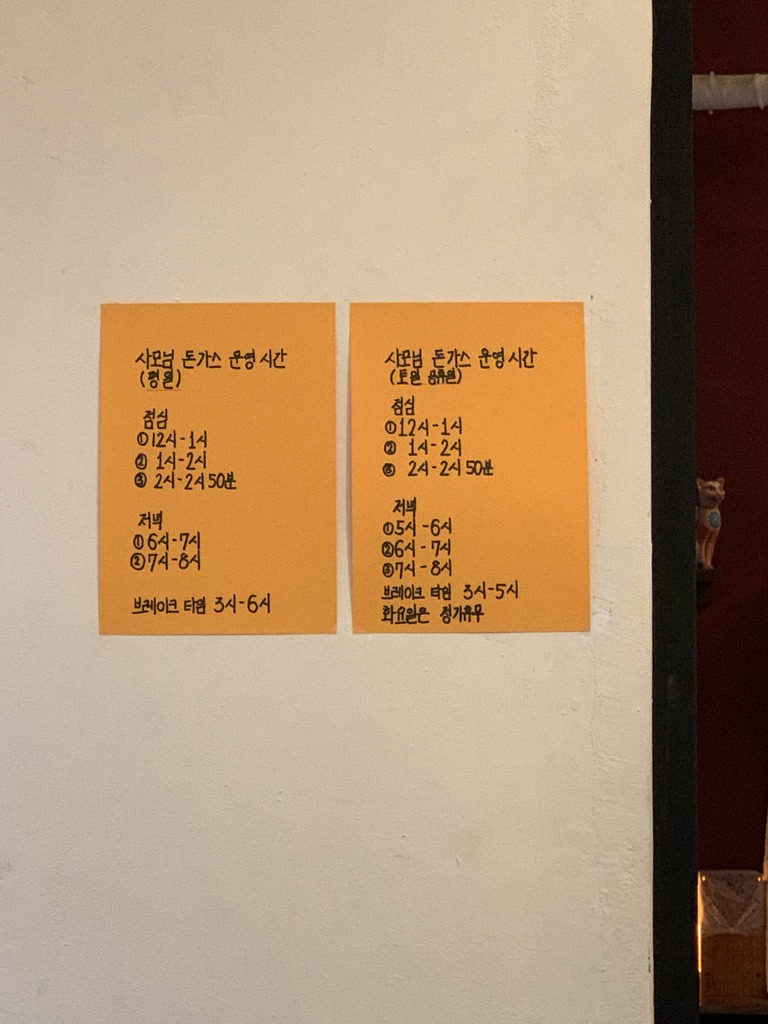 사모님 돈가스 운영시간
(평일)
점심
① 12시-1시
② 1시-2시
③ 2시-2시50분
저녁
① 6시-7시
② 7시-8시
브레이크 타임 3시-6시
사모님 돈가스 운영시간
(토일 공휴일)
점심
① 12시-1시
② 1시-2시
③ 2시-2시50분
저녁
① 5시-6시
② 6시-7시
③ 7시-8시
브레이크 타임 3시-5시
화요일은 정기휴무